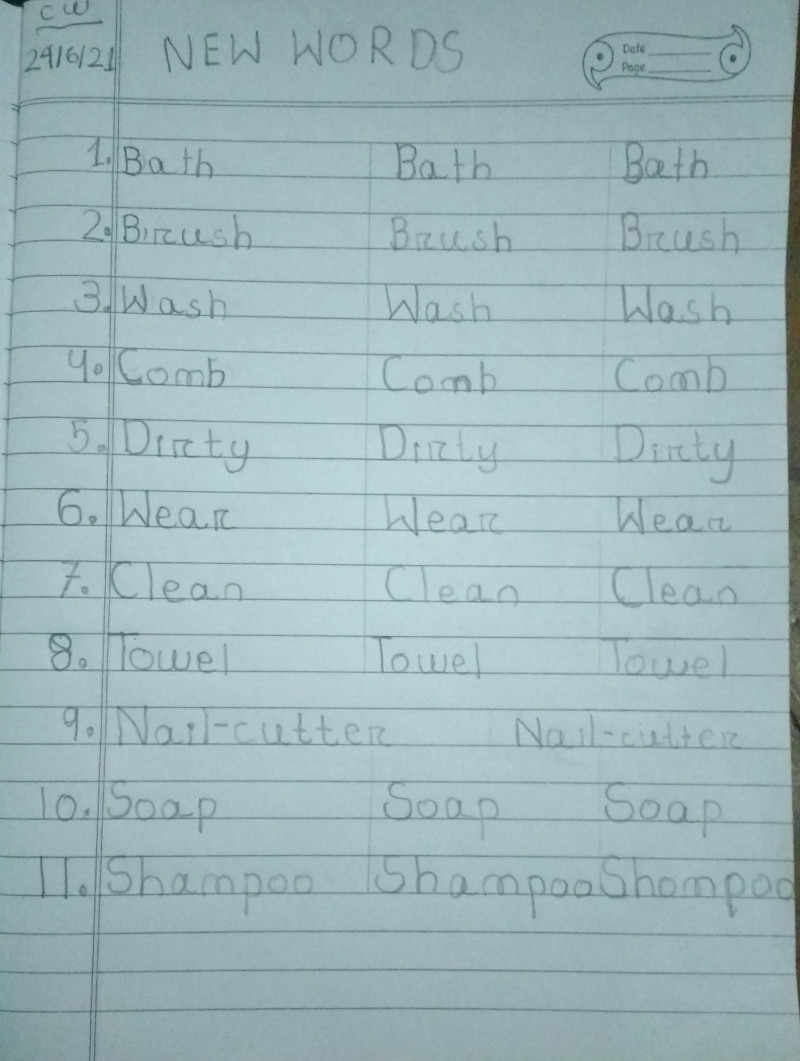 CW
29/6/21 NEW WORDS
Date
Page
1. Bath Bath Bath
2. Brush Brush Brush
3. Wash Wash Wash
4. Comb Comb Comb
5. Dirty Dirty Dirty
6. Wear Wear Wear
7. Clean Clean Clean
8. Towel Towel Towel
9. Nail-cutter Nail-cutter
10. Soap Soap Soap
11. Shampoo Shampoo Shompoo